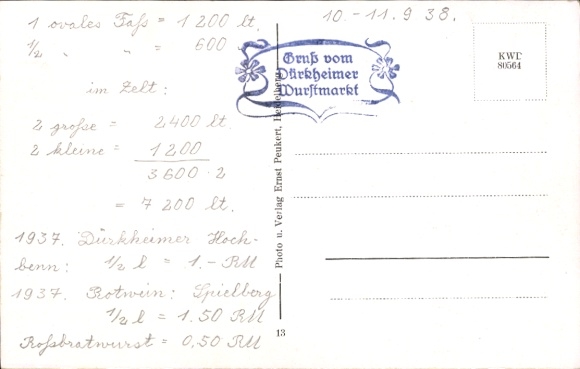 1 ovales Faß = 1 200 lt.
1/2 " " = 600
im Zelt:
2 große = 2400 lt.
2 kleine = 1200
3600 · 2
= 7 200 lt.
1937. Dürkheimer Hoch-
benn: 1/2 l = 1.- RM
1937. Rotwein: Spielberg
1/2 l = 1.50 RM
Roßbratwurst = 0,50 RM
10.-11.9 38.
Gruß vom
Dürkheimer
Wurstmarkt
Photo u. Verlag Ernst Peukert, Heidelberg
13
KWD
80564